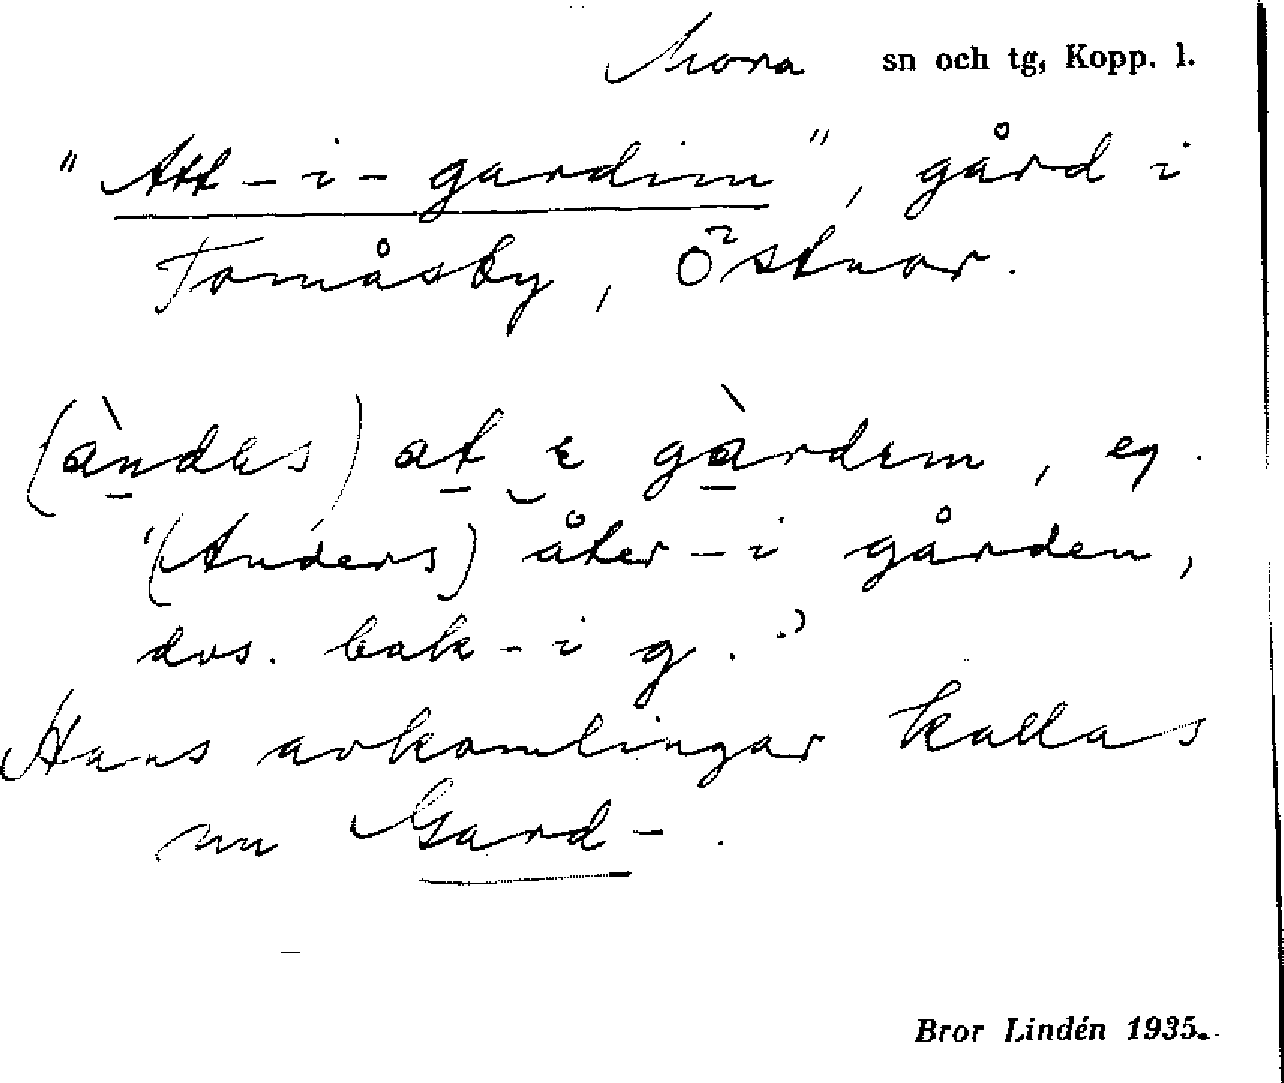 Mora sn och tg, Kopp. l.
"Att-i-gardim", gård i
Tomåsby, Östnor.
(àndɛs) at ɛ gàrdɛm, eg.
'(Anders) åter-i gården,
dvs. bak-i g.'
Hans avkomlingar kallas
nu Gard-.
Bror Lindén 1935.